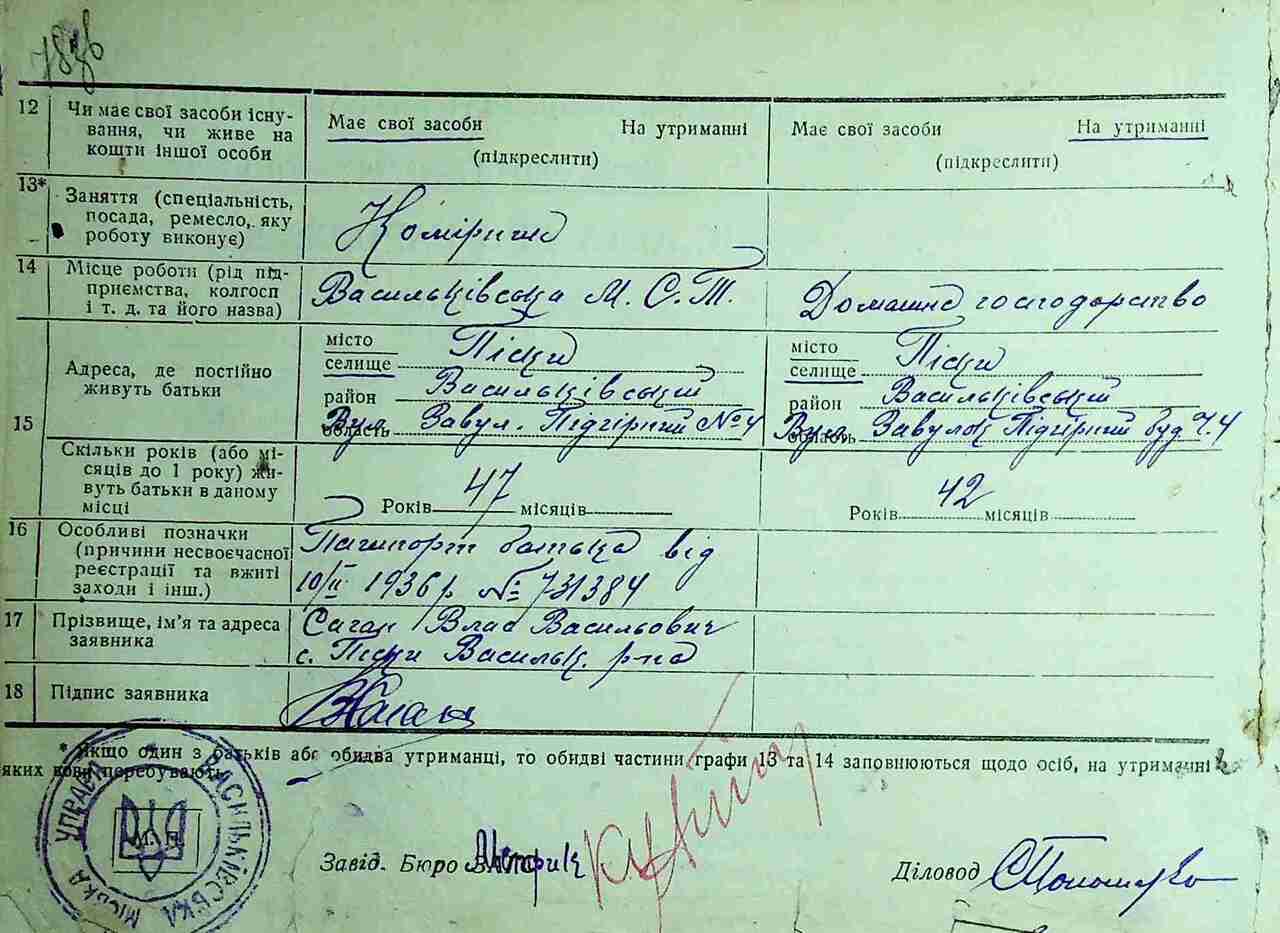 12 Чи має свої засоби існу-
вання, чи живе на
кошти іншої особи
Має свої засоби На утриманні
(підкреслити)
Має свої засоби На утриманні
(підкреслити)
13* Заняття (спеціальність,
посада, ремесло, яку
роботу виконує)
Комірник
14 Місце роботи (рід під-
приємства, колгосп
і т. д. та його назва)
Васильківська М. С. Т.
Домашнє господарство
15 Адреса, де постійно
живуть батьки
місто
селище Піски
район Васильківський
область Вул. Завул. Підгірний № 4
місто
селище Піски
район Васильківський
область Вул. Завулок Підгірний буд. Ч. 4
Скільки років (або мі-
сяців до 1 року) жи-
вуть батьки в даному
місці
Років 47 місяців
Років 42 місяців
16 Особливі позначки
(причини несвоєчасної
реєстрації та вжиті
заходи і інш.)
Пашпорт батька від
10/II 1936 р. № 731384
17 Прізвище, ім'я та адреса
заявника
Саган Влас Васильович
с. Піски Васильк. р-на
18 Підпис заявника
ВСаган
* Якщо один з батьків або обидва утриманці, то обидві частини графи 13 та 14 заповнюються щодо осіб, на утриманні
яких вони перебувають
ВАСИЛЬКІВСЬКА МІСЬКА УПРАВА
М. П.
Завід. Бюро ЗАГС
Діловод СПономаренко